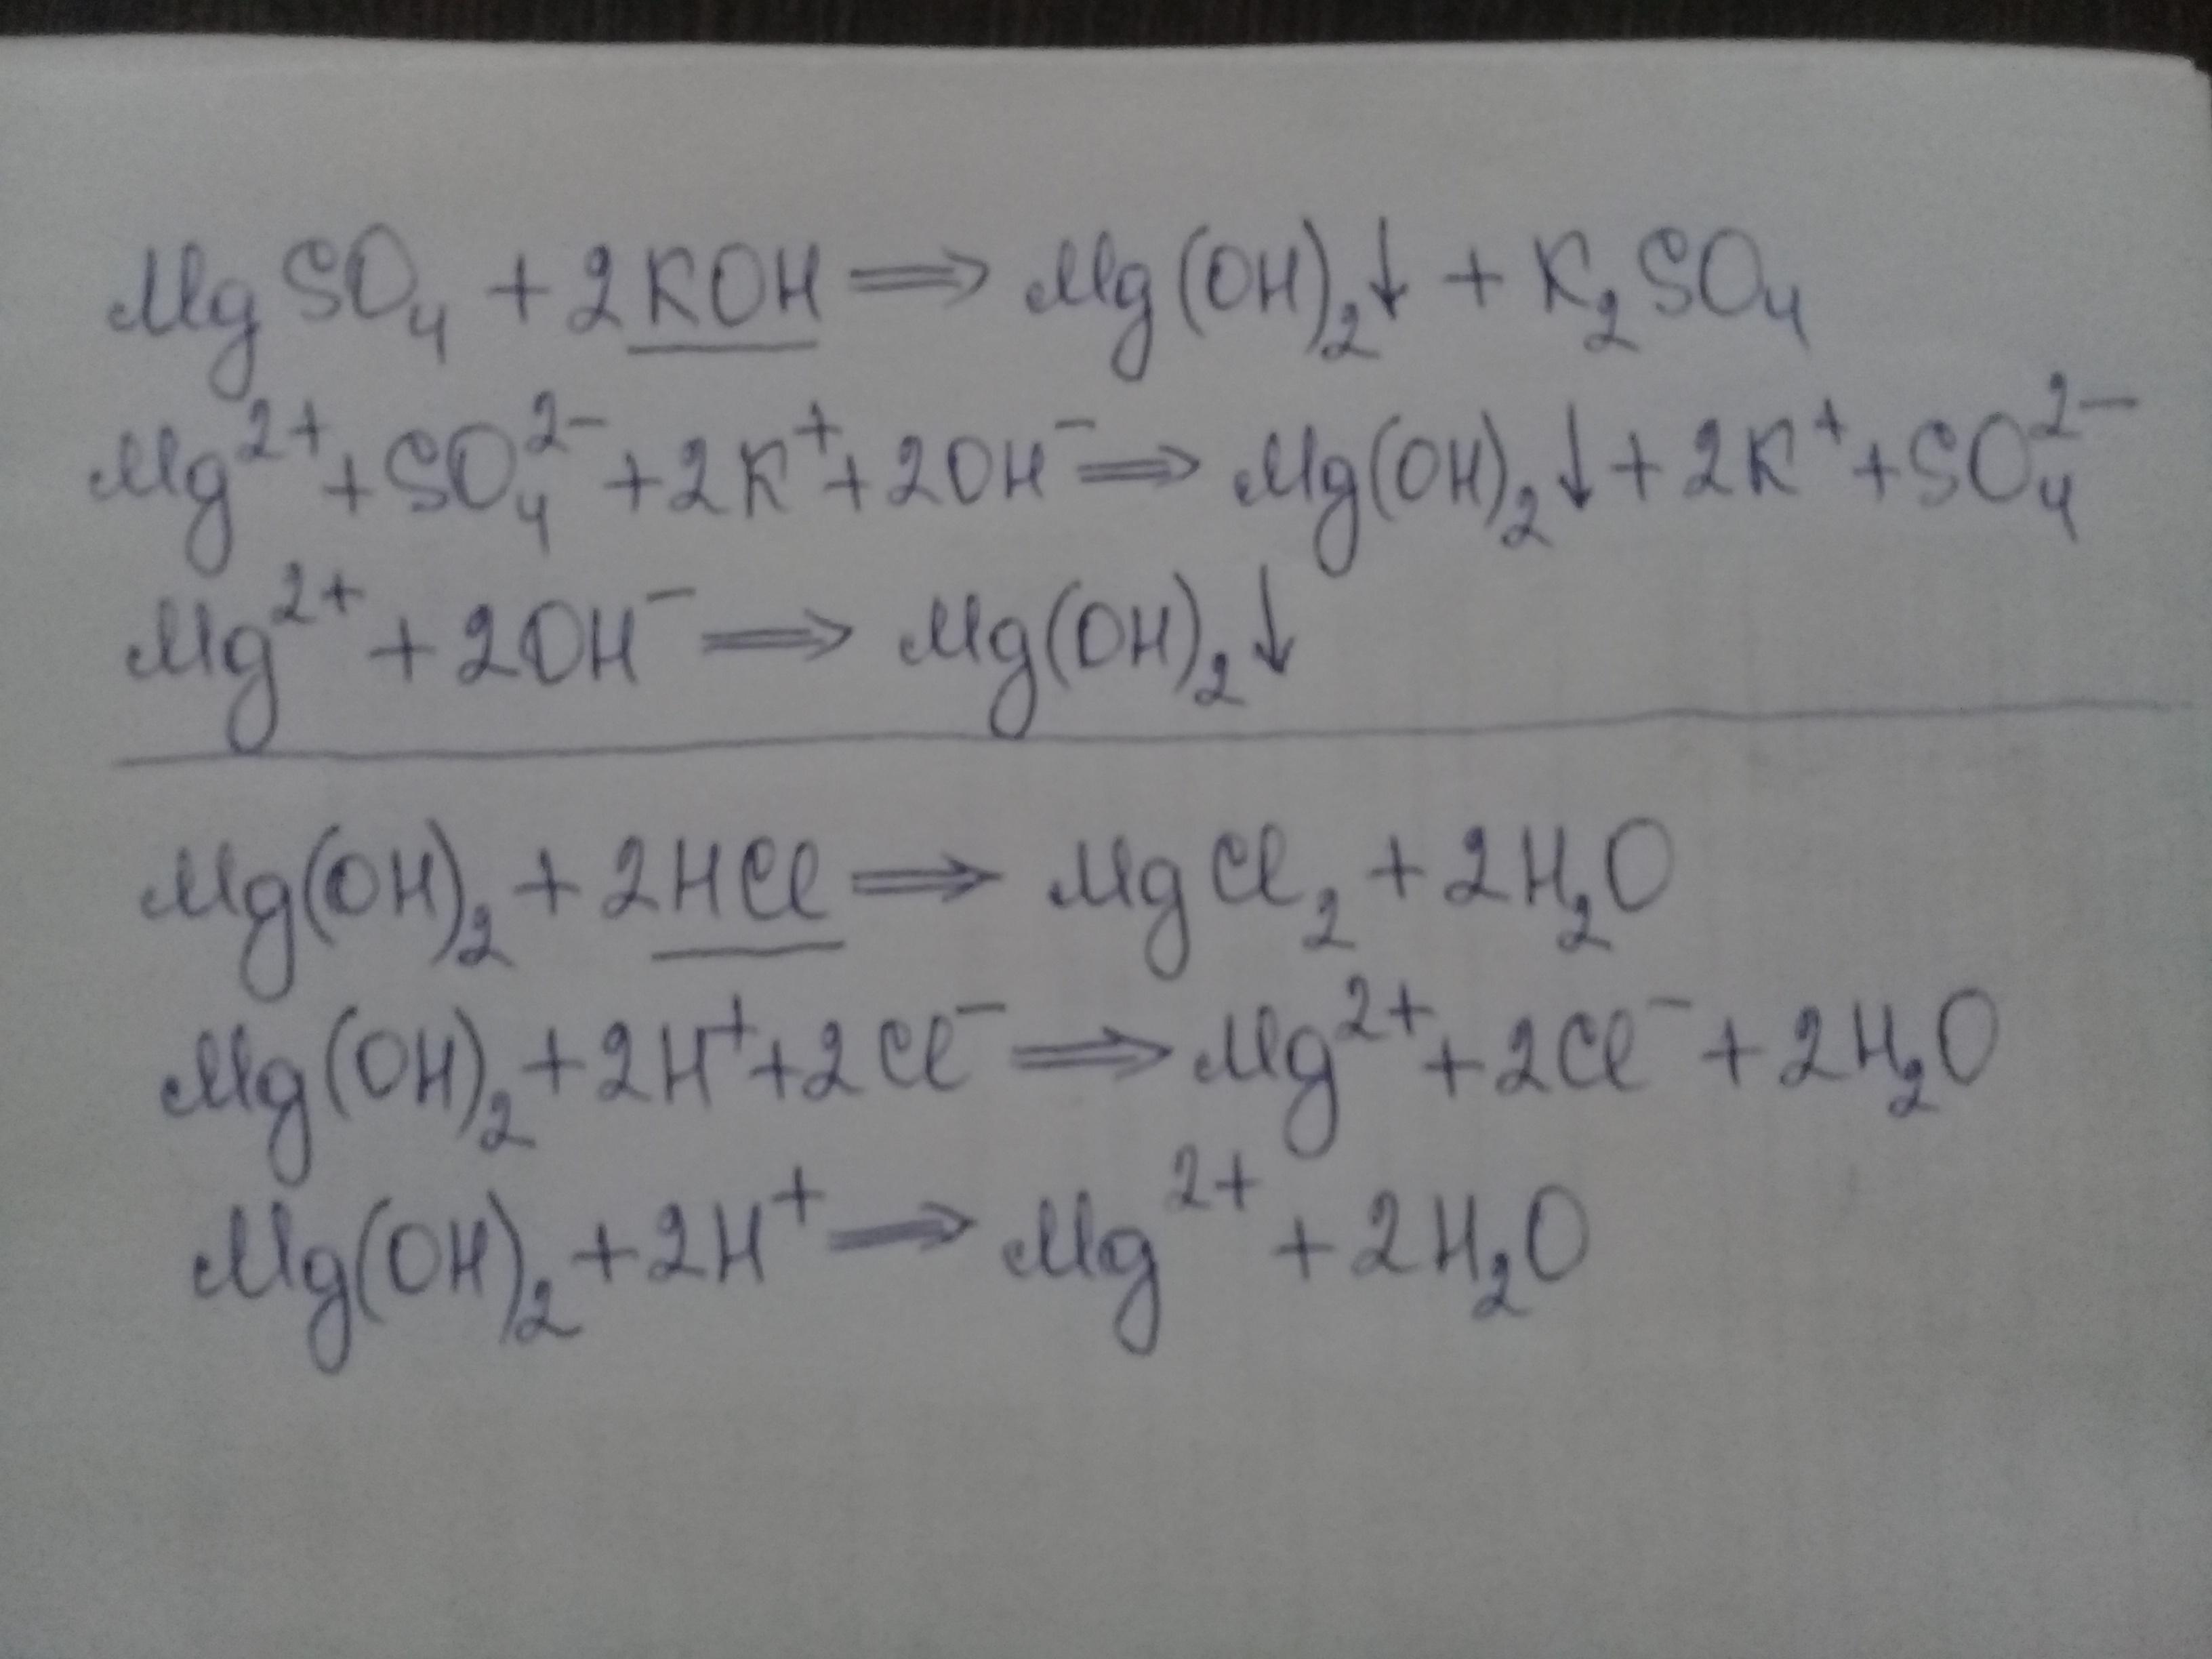 MgSO₄ + 2KOH ⟹ Mg(OH)₂↓ + K₂SO₄
Mg²⁺ + SO₄²⁻ + 2K⁺ + 2OH⁻ ⟹ Mg(OH)₂↓ + 2K⁺ + SO₄²⁻
Mg²⁺ + 2OH⁻ ⟹ Mg(OH)₂↓
Mg(OH)₂ + 2HCl ⟹ MgCl₂ + 2H₂O
Mg(OH)₂ + 2H⁺ + 2Cl⁻ ⟹ Mg²⁺ + 2Cl⁻ + 2H₂O
Mg(OH)₂ + 2H⁺ ⟹ Mg²⁺ + 2H₂O